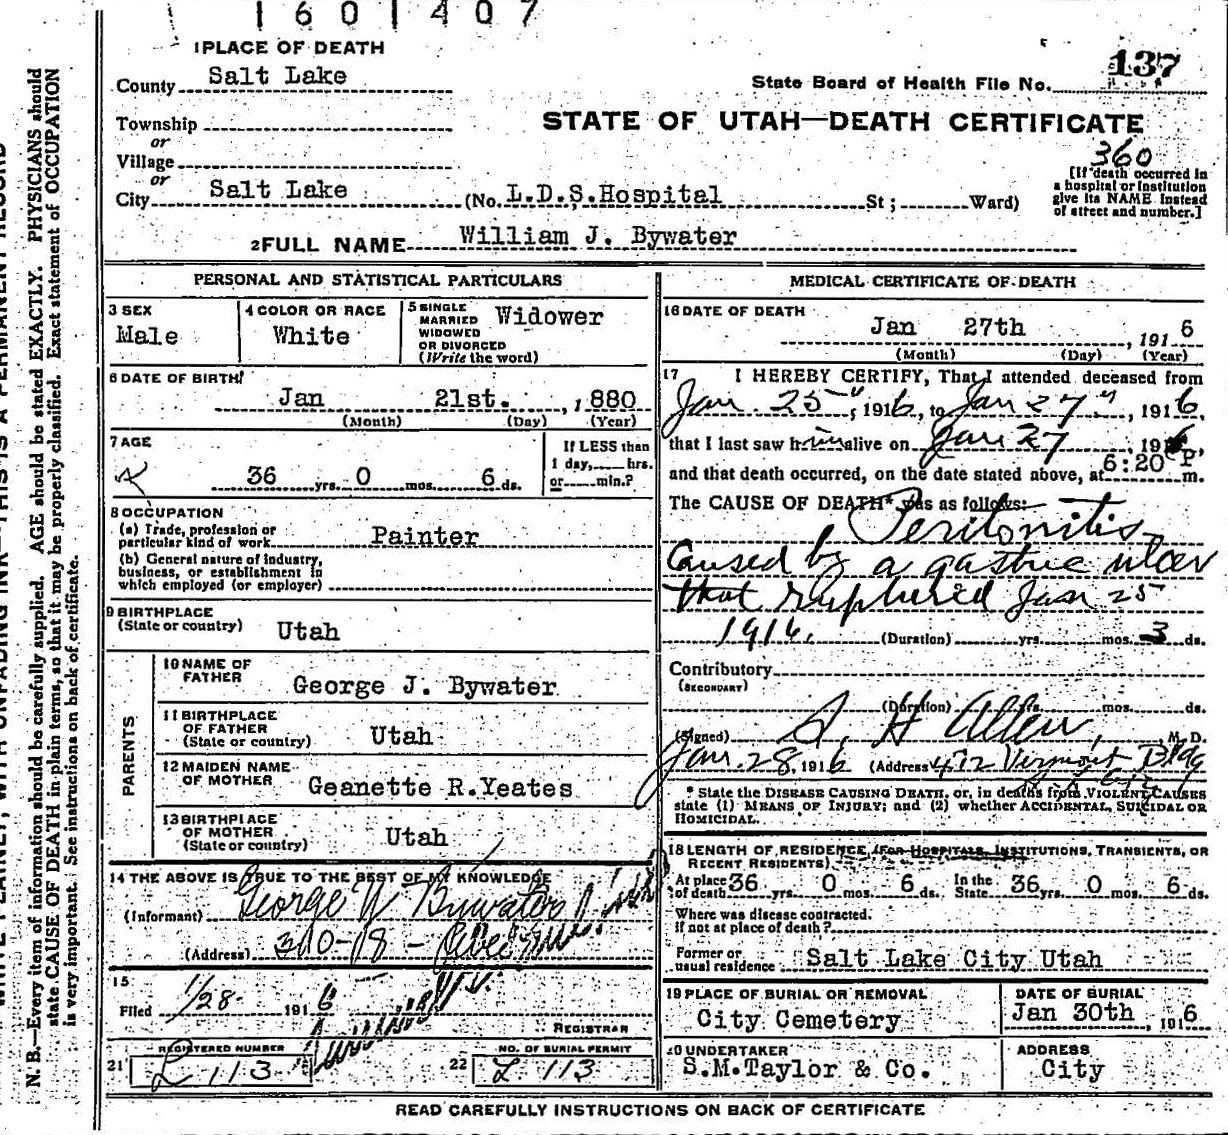 1601407
1 PLACE OF DEATH
County Salt Lake
State Board of Health File No. 137
Township
or
STATE OF UTAH—DEATH CERTIFICATE
Village
or
360
City Salt Lake (No. L.D.S.Hospital St ; Ward)
[If death occurred in
a hospital or institution
give its NAME instead
of street and number.]
2 FULL NAME William J. Bywater
PERSONAL AND STATISTICAL PARTICULARS
3 SEX
Male
4 COLOR OR RACE
White
5 SINGLE
MARRIED
WIDOWED
OR DIVORCED
(Write the word)
Widower
6 DATE OF BIRTH
Jan 21st. , 1880
(Month) (Day) (Year)
7 AGE
36 yrs. 0 mos. 6 ds.
If LESS than
1 day, hrs.
or min.?
8 OCCUPATION
(a) Trade, profession or
particular kind of work Painter
(b) General nature of industry,
business, or establishment in
which employed (or employer)
9 BIRTHPLACE
(State or country) Utah
PARENTS
10 NAME OF
FATHER George J. Bywater
11 BIRTHPLACE
OF FATHER
(State or country) Utah
12 MAIDEN NAME
OF MOTHER Geanette R.Yeates
13 BIRTHPLACE
OF MOTHER
(State or country) Utah
14 THE ABOVE IS TRUE TO THE BEST OF MY KNOWLEDGE
(Informant) George W Bywater
(Address) 310-18-
15
Filed 1/28- 1916
REGISTRAR
21 REGISTERED NUMBER
L 113
22 NO. OF BURIAL PERMIT
L 113
MEDICAL CERTIFICATE OF DEATH
16 DATE OF DEATH
Jan 27th , 1916
(Month) (Day) (Year)
17 I HEREBY CERTIFY, That I attended deceased from
Jan. 25", 1916, to Jan 27", 1916
that I last saw him alive on Jan 27 1916,
and that death occurred, on the date stated above, at 6:20 P m.
The CAUSE OF DEATH* was as follows:
Peritonitis
Caused by a gastric ulcer
that ruptured Jan 25
1916. (Duration) yrs. mos. 3 ds.
Contributory
(SECONDARY)
(Duration) yrs. mos. ds.
(Signed) S. H Allen, M. D.
Jan. 28, 1916 (Address) 412 Vermont Bldg
* State the DISEASE CAUSING DEATH, or, in deaths from VIOLENT CAUSES
state (1) MEANS OF INJURY; and (2) whether ACCIDENTAL, SUICIDAL OR
HOMICIDAL.
18 LENGTH OF RESIDENCE (FOR HOSPITALS, INSTITUTIONS, TRANSIENTS, OR
RECENT RESIDENTS).
At place
of death 36 yrs. 0 mos. 6 ds. In the
State 36 yrs. 0 mos. 6 ds.
Where was disease contracted.
if not at place of death?
Former or
usual residence Salt Lake City Utah
19 PLACE OF BURIAL OR REMOVAL
City Cemetery
DATE OF BURIAL
Jan 30th , 1916
20 UNDERTAKER
S.M.Taylor & Co.
ADDRESS
City
READ CAREFULLY INSTRUCTIONS ON BACK OF CERTIFICATE
N. B.—Every item of information should be carefully supplied. AGE should be stated EXACTLY. PHYSICIANS should
state CAUSE OF DEATH in plain terms, so that it may be properly classified. Exact statement of OCCUPATION
is very important. See instructions on back of certificate.